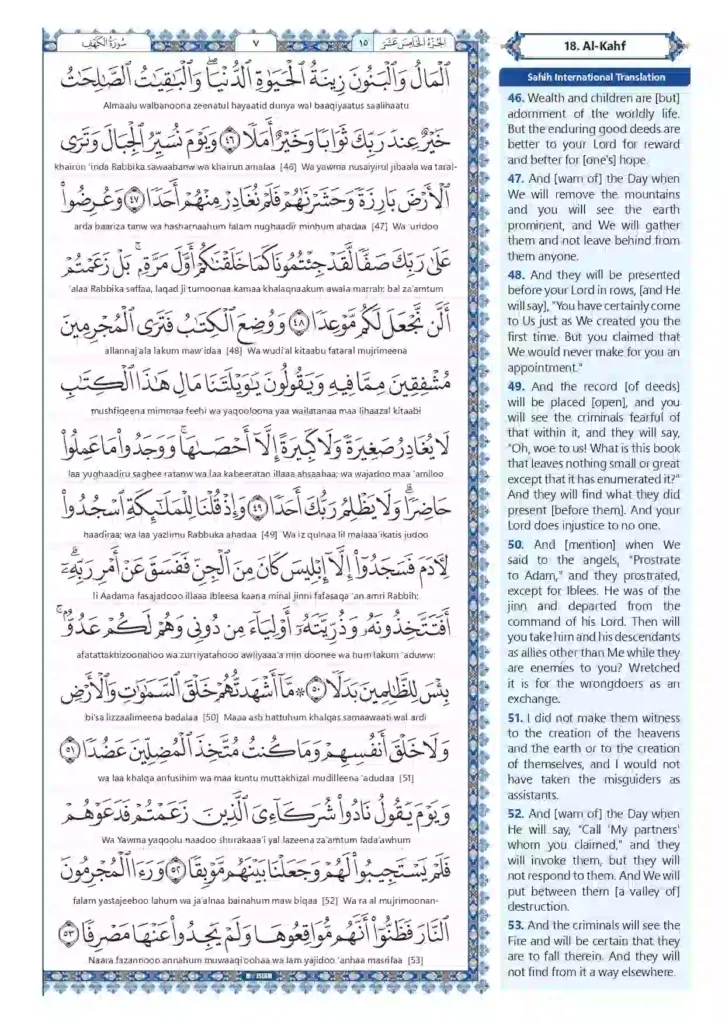 الجزء الخامس عشر ١٥
٧
سورة الكهف
ٱلْمَالُ وَٱلْبَنُونَ زِينَةُ ٱلْحَيَوٰةِ ٱلدُّنْيَا ۖ وَٱلْبَٰقِيَٰتُ ٱلصَّٰلِحَٰتُ
Almaalu walbanoona zeenatul hayaatid dunya wal baaqiyaatus saalihaatu
خَيْرٌ عِندَ رَبِّكَ ثَوَابًا وَخَيْرٌ أَمَلًا ٤٦ وَيَوْمَ نُسَيِّرُ ٱلْجِبَالَ وَتَرَى
khairun 'inda Rabbika sawaabanw wa khairun amalaa [46] Wa yawma nusaiyirul jibaala wa taral-
ٱلْأَرْضَ بَارِزَةً وَحَشَرْنَٰهُمْ فَلَمْ نُغَادِرْ مِنْهُمْ أَحَدًا ٤٧ وَعُرِضُوا۟
arda baariza tanw wa hasharnaahum falam nughaadir minhum ahadaa [47] Wa 'uridoo
عَلَىٰ رَبِّكَ صَفًّا لَّقَدْ جِئْتُمُونَا كَمَا خَلَقْنَٰكُمْ أَوَّلَ مَرَّةٍۭ ۚ بَلْ زَعَمْتُمْ
'alaa Rabbika saffaa, laqad ji'tumoonaa kamaa khalaqnaakum awala marrah; bal za'amtum
أَلَّن نَّجْعَلَ لَكُم مَّوْعِدًا ٤٨ وَوُضِعَ ٱلْكِتَٰبُ فَتَرَى ٱلْمُجْرِمِينَ
allannaj'ala lakum maw'idaa [48] Wa wudi'al kitaabu fataral mujrimeena
مُشْفِقِينَ مِمَّا فِيهِ وَيَقُولُونَ يَٰوَيْلَتَنَا مَالِ هَٰذَا ٱلْكِتَٰبِ
mushfiqeena mimmaa feehi wa yaqooloona yaa wailatanaa maa lihaazal kitaabi
لَا يُغَادِرُ صَغِيرَةً وَلَا كَبِيرَةً إِلَّآ أَحْصَىٰهَا ۚ وَوَجَدُوا۟ مَا عَمِلُوا۟
laa yughaadiru saghee ratanw wa laa kabeeratan illaaa ahsaahaa; wa wajadoo maa 'amiloo
حَاضِرًا ۗ وَلَا يَظْلِمُ رَبُّكَ أَحَدًا ٤٩ وَإِذْ قُلْنَا لِلْمَلَٰٓئِكَةِ ٱسْجُدُوا۟
haadiraa; wa laa yazlimu Rabbuka ahadaa [49] Wa iz qulnaa lil malaaa'ikatis judoo
لِءَادَمَ فَسَجَدُوٓا۟ إِلَّآ إِبْلِيسَ كَانَ مِنَ ٱلْجِنِّ فَفَسَقَ عَنْ أَمْرِ رَبِّهِۦٓ ۗ
li Aadama fasajadooo illaaa Ibleesa kaana minal jinni fafasaqa 'an amri Rabbih;
أَفَتَتَّخِذُونَهُۥ وَذُرِّيَّتَهُۥٓ أَوْلِيَآءَ مِن دُونِى وَهُمْ لَكُمْ عَدُوٌّۢ ۚ
afatattakhizoonahoo wa zurriyatahooo awliyaaa'a min doonee wa hum lakum 'aduww;
بِئْسَ لِلظَّٰلِمِينَ بَدَلًا ٥٠ ۞ مَّآ أَشْهَدتُّهُمْ خَلْقَ ٱلسَّمَٰوَٰتِ وَٱلْأَرْضِ
bi'sa lizzaalimeena badalaa [50] Maaa ash hattuhum khalqas samaawaati wal ardi
وَلَا خَلْقَ أَنفُسِهِمْ وَمَا كُنتُ مُتَّخِذَ ٱلْمُضِلِّينَ عَضُدًا ٥١
wa laa khalqa anfusihim wa maa kuntu muttakhizal mudilleena 'adudaa [51]
وَيَوْمَ يَقُولُ نَادُوا۟ شُرَكَآءِىَ ٱلَّذِينَ زَعَمْتُمْ فَدَعَوْهُمْ
Wa Yawma yaqoolu naadoo shurakaaa'i yal lazeena za'amtum fada'awhum
فَلَمْ يَسْتَجِيبُوا۟ لَهُمْ وَجَعَلْنَا بَيْنَهُم مَّوْبِقًا ٥٢ وَرَءَا ٱلْمُجْرِمُونَ
falam yastajeeboo lahum wa ja'alnaa bainahum maw biqaa [52] Wa ra al mujrimoonan-
ٱلنَّارَ فَظَنُّوٓا۟ أَنَّهُم مُّوَاقِعُوهَا وَلَمْ يَجِدُوا۟ عَنْهَا مَصْرِفًا ٥٣
Naara fazannooo annahum muwaaqi'oohaa wa lam yajidoo 'anhaa masrifaa [53]
18. Al-Kahf
Sahih International Translation
46. Wealth and children are [but]
adornment of the worldly life.
But the enduring good deeds are
better to your Lord for reward
and better for [one's] hope.
47. And [warn of] the Day when
We will remove the mountains
and you will see the earth
prominent, and We will gather
them and not leave behind from
them anyone.
48. And they will be presented
before your Lord in rows, [and He
will say], "You have certainly come
to Us just as We created you the
first time. But you claimed that
We would never make for you an
appointment."
49. And the record [of deeds]
will be placed [open], and you
will see the criminals fearful of
that within it, and they will say,
"Oh, woe to us! What is this book
that leaves nothing small or great
except that it has enumerated it?"
And they will find what they did
present [before them]. And your
Lord does injustice to no one.
50. And [mention] when We
said to the angels, "Prostrate
to Adam," and they prostrated,
except for Iblees. He was of the
jinn and departed from the
command of his Lord. Then will
you take him and his descendants
as allies other than Me while they
are enemies to you? Wretched
it is for the wrongdoers as an
exchange.
51. I did not make them witness
to the creation of the heavens
and the earth or to the creation
of themselves, and I would not
have taken the misguiders as
assistants.
52. And [warn of] the Day when
He will say, "Call 'My partners'
whom you claimed," and they
will invoke them, but they will
not respond to them. And We will
put between them [a valley of]
destruction.
53. And the criminals will see the
Fire and will be certain that they
are to fall therein. And they will
not find from it a way elsewhere.